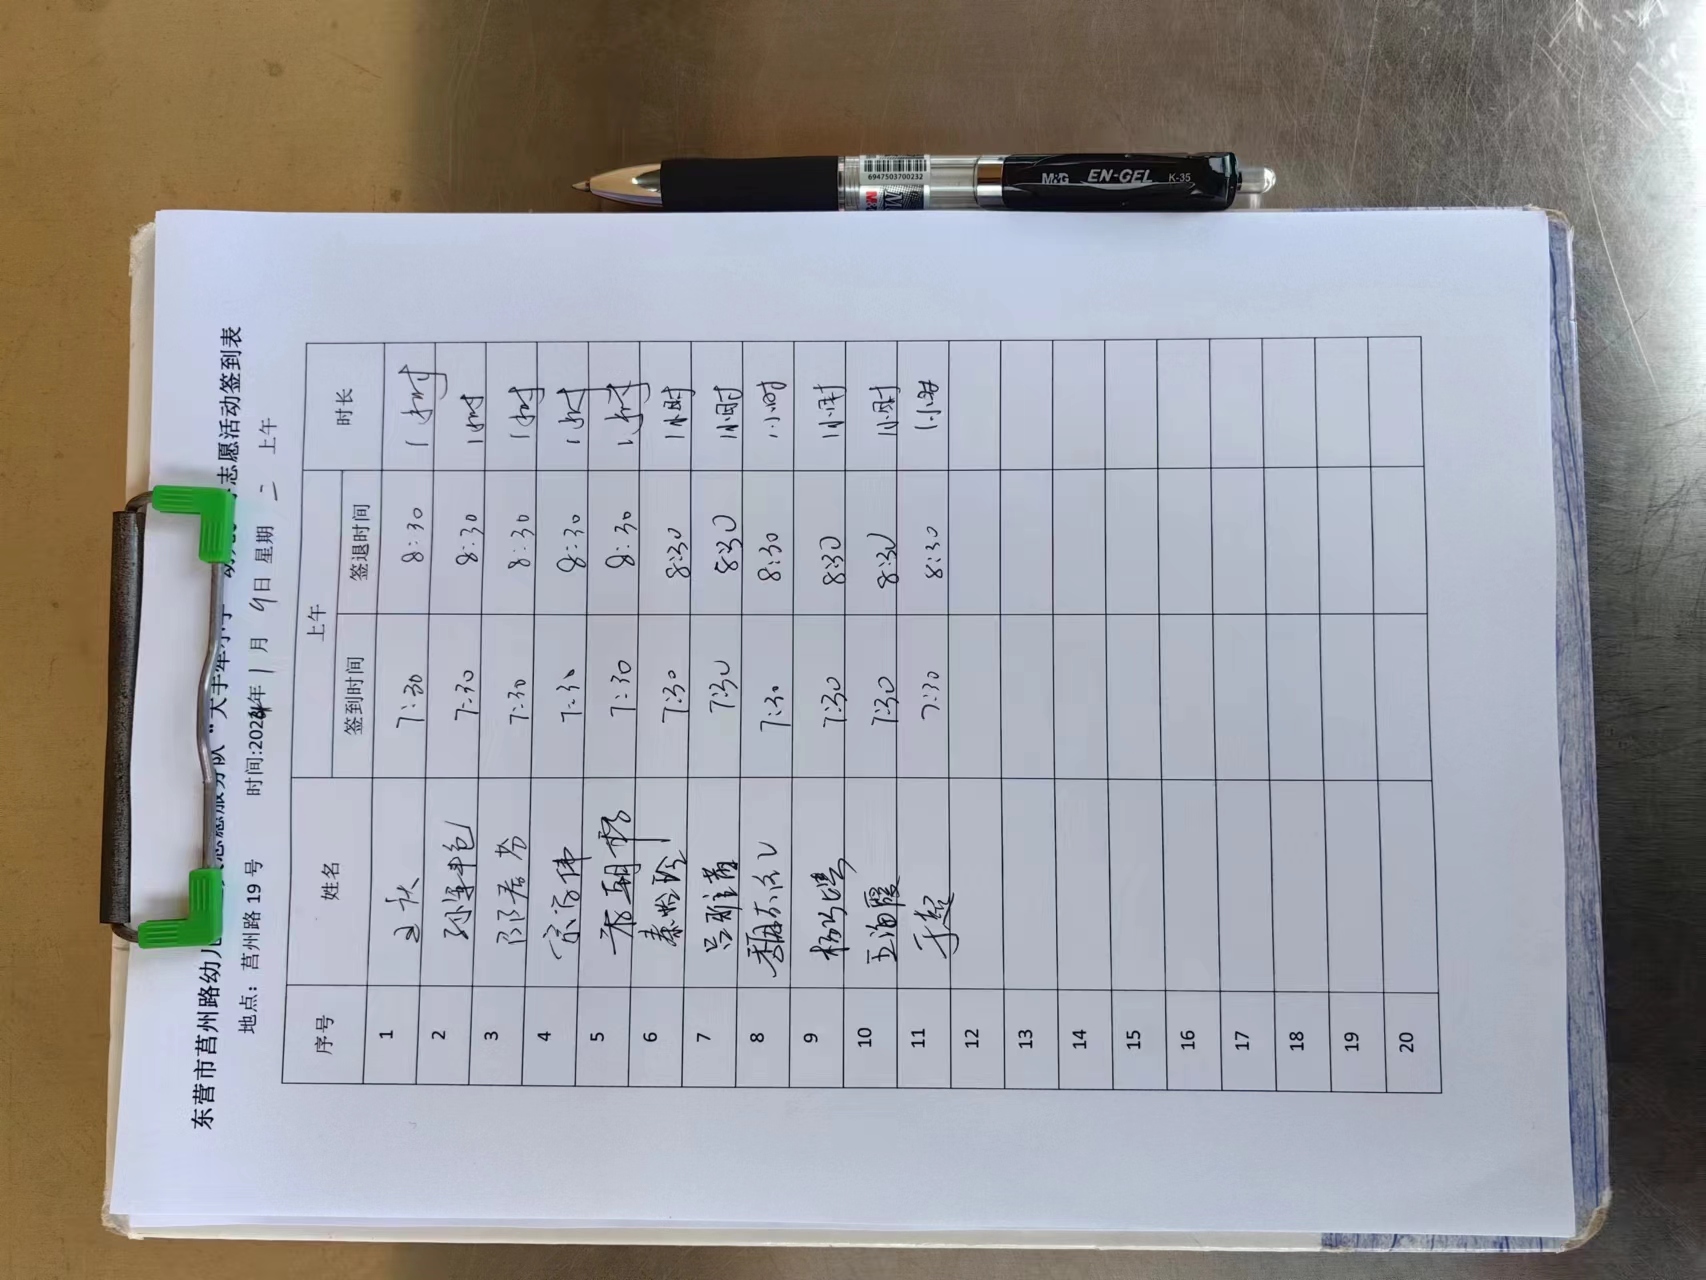 东营市莒州路幼儿 志愿服务队“大手牵小手 志愿活动签到表
地点：莒州路19号 时间:2024年1月9日 星期二 上午
序号 姓名 上午 时长
签到时间 签退时间
1 7:30 8:30 1小时
2 7:30 8:30 1小时
3 邵君芳 7:30 8:30 1小时
4 7:30 8:30 1小时
5 7:30 8:30 1小时
6 秦怡玲 7:30 8:30 1小时
7 吕雅菁 7:30 8:30 1小时
8 7:30 8:30 1小时
9 7:30 8:30 1小时
10 王海霞 7:30 8:30 1小时
11 于超 7:30 8:30 1小时
12
13
14
15
16
17
18
19
20
6947503700232
M&G EN-GEL K-35